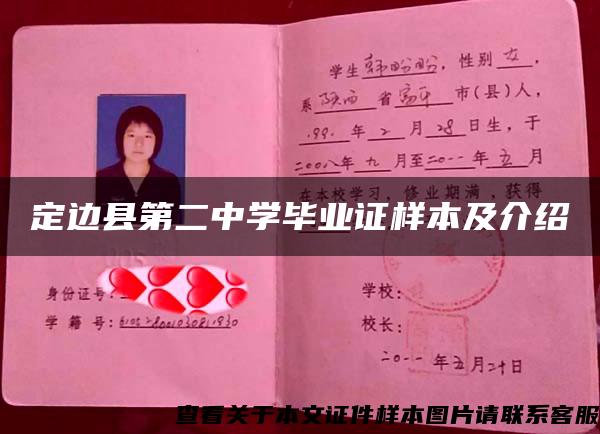 学生韩盼盼，性别女，
系陕西省富平市(县)人，
1991年2月28日生，于
二00八年九月至二0一一年五月
在本校学习，修业期满，获得
定边县第二中学毕业证样本及介绍
身份证号：
学籍号：
学校：
校长：
二0一一年五月二十日
查看关于本文证件样本图片请联系客服